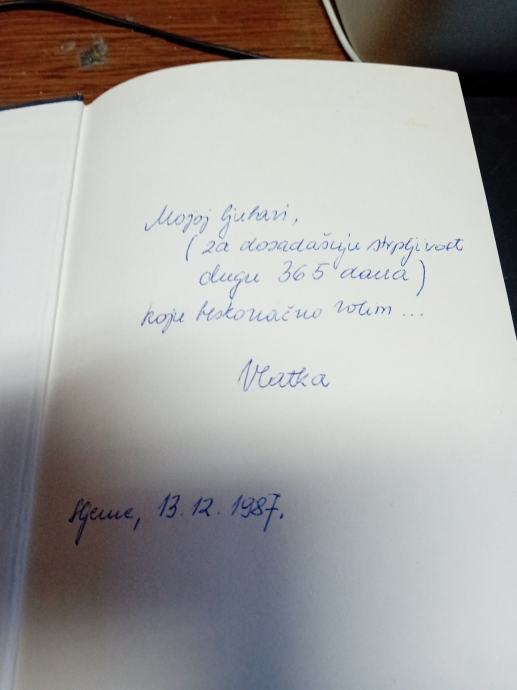 Mojoj ljubavi,
(za dosadašnju strpljivost
dugu 365 dana)
koju beskonačno volim ...
Vlatka
Sljeme, 13.12.1987.